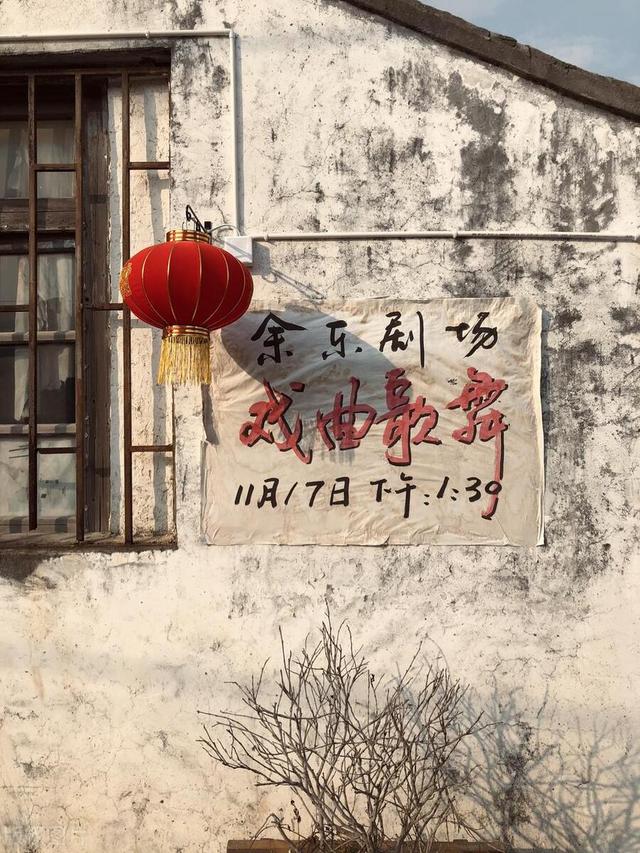 余东剧场
戏曲歌舞
11月17日下午:1:30